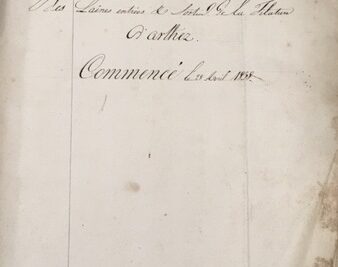 Des Laines entrées & Sorties de la Filature
D'arthez.
Commencé le 28 Avril 1838.